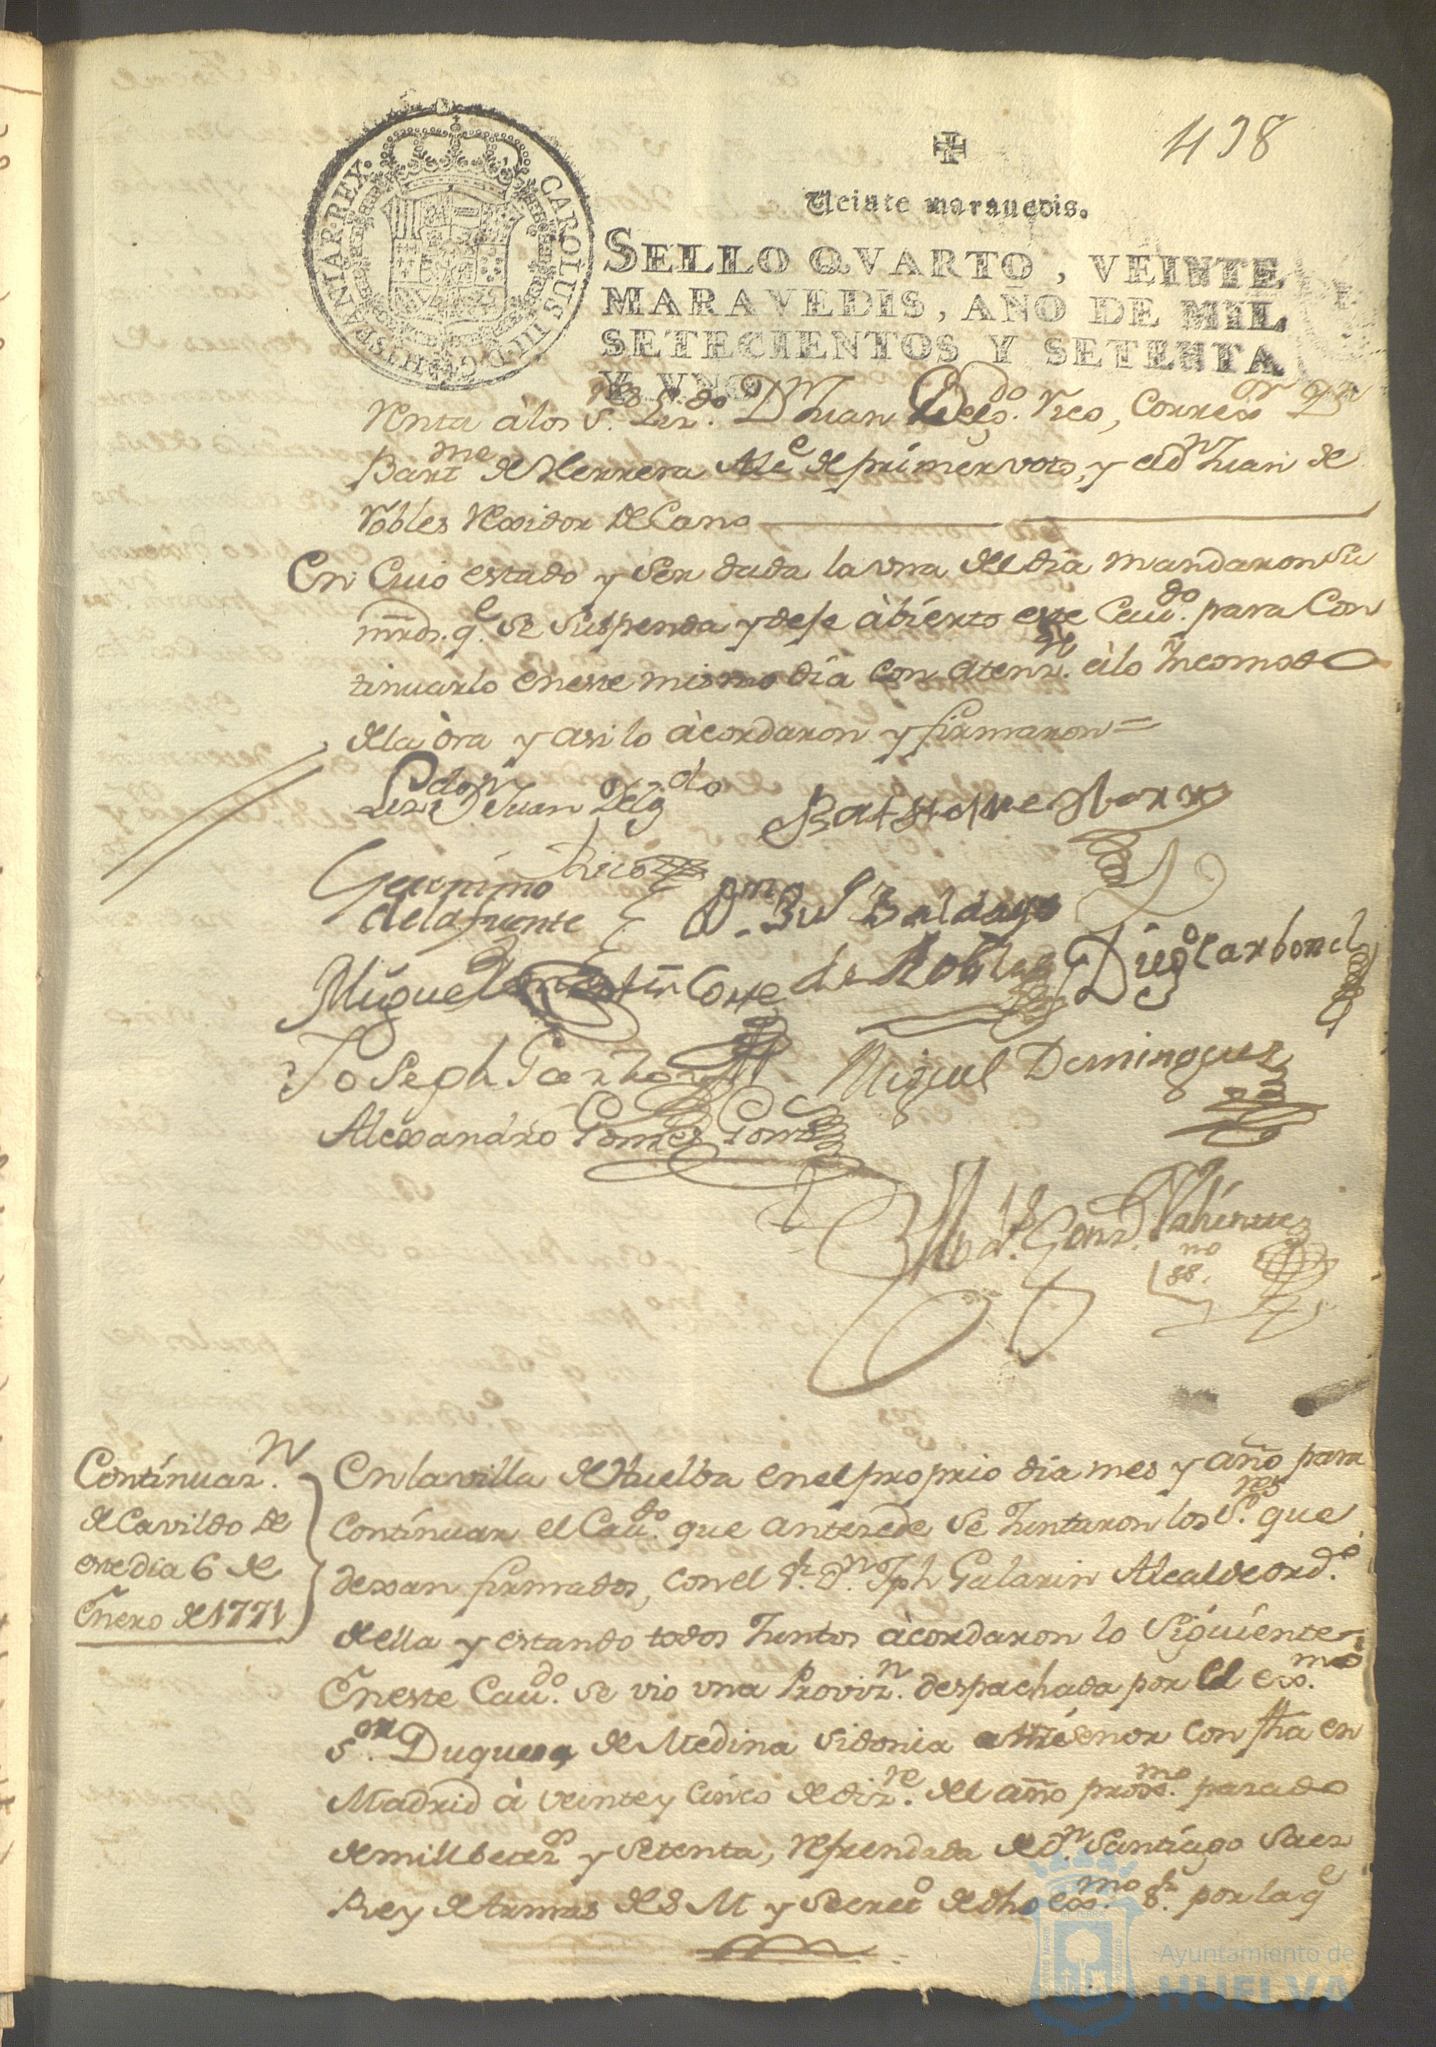 498
Veinte marauedis.
SELLO QVARTO, VEINTE
MARAVEDIS, AÑO DE MIL
SETECIENTOS Y SETENTA
Y VNO.
CAROLUS III D G HISPANIAR REX
Venta à los S.res Liz.do Dn Juan Delg.do Rico, Correx.or Dn
Bart.me de Herrera Alc.e de primer voto, y el dn Juan de
Robles Rexidor Decano
En Cuio estado y ser dada la vna del dia mandaron su
mrds. q.e se suspenda y deje abierto este Cau.do para Con
tinuarlo en este mismo dia con atenz.n à lo Yncomodo
de la òra y asi lo àcordaron y firmaron=
Lizdo Dn Juan Delgdo
Rico
Geronimo
de la fuente
Miguel
Corte
de Robles
Diego Carbonel
Joseph
Miguel Dominguez
Alexandro Gomez
Gonz.
no
ss.
Continuaz.n
de Cavildo de
este dia 6 de
Enero de 1771
En la villa de Huelba en el proprio dia mes y año para
continuar el Cau.do que antezede se Juntaron los S.res que
dexan firmados, con el S.r D.n Jph Galarin Alcalde ord.o
de ella y estando todos Juntos àcordaron lo Siguiente
En este Cau.do se vio vna Proviz.n despachada por el exmo.
S.or Duque de Medina Sidonia mi señor con fha en
Madrid à veinte y cinco de diz.re del año prox.mo pasado
de mill setez.os y setenta, refrendada de D.n Santiago Saez
Rey de Armas de S M y Secret.o de dho exmo. S.r por la q.e
Ayuntamiento de
HUELVA